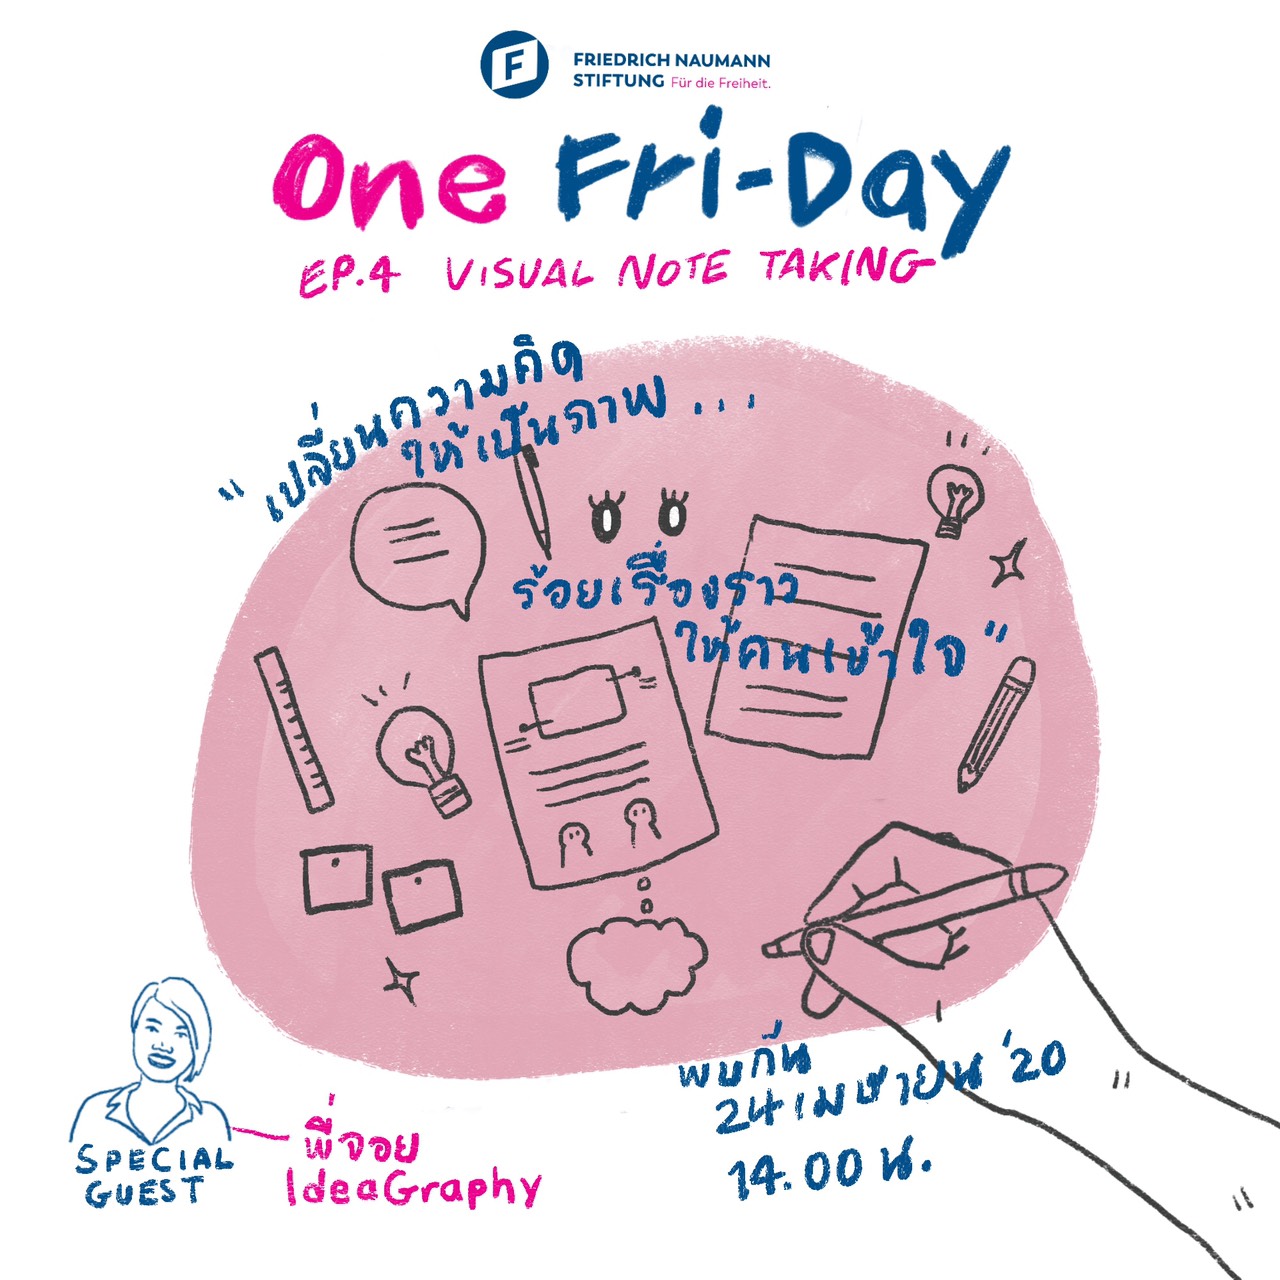 F
FRIEDRICH NAUMANN
STIFTUNG Für die Freiheit.
One Fri-Day
EP.4 VISUAL NOTE TAKING
"เปลี่ยนความคิด
ให้เป็นภาพ...
ร้อยเรื่องราว
ให้คนเข้าใจ"
พบกัน
24 เมษายน '20
14.00 น.
SPECIAL
GUEST
พี่จอย
IdeaGraphy